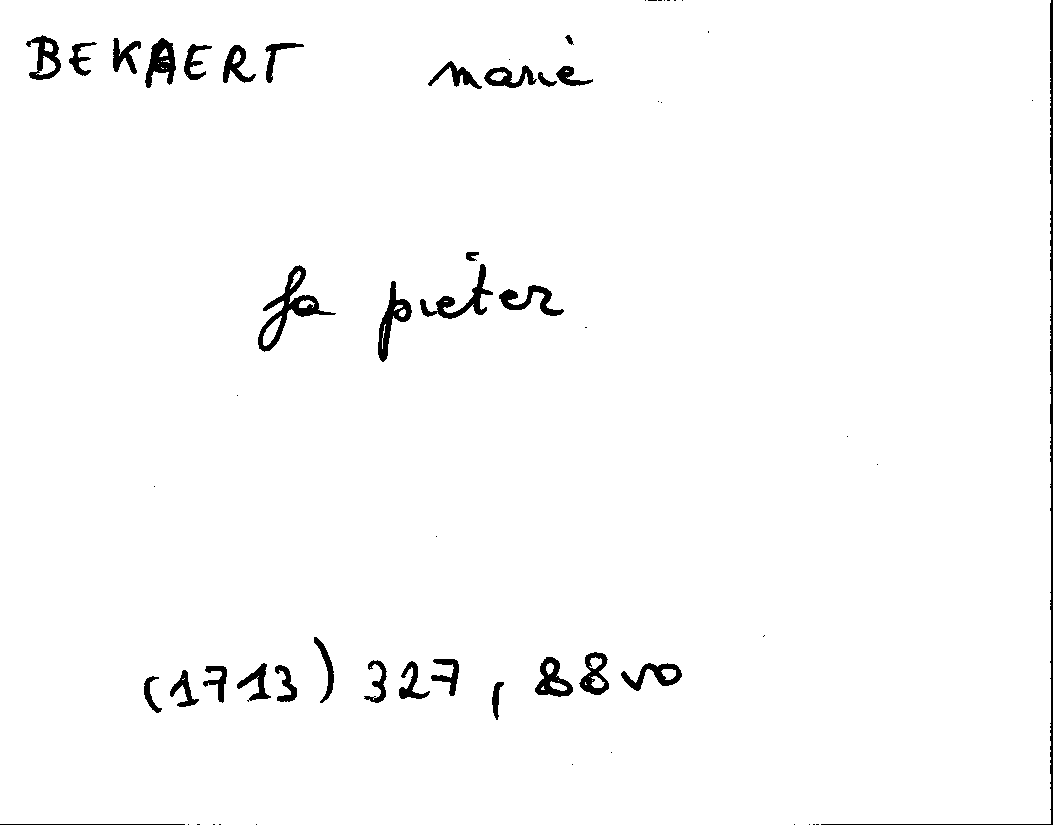 BEKAERT marie
fa pieter
(1713) 327, 88vo